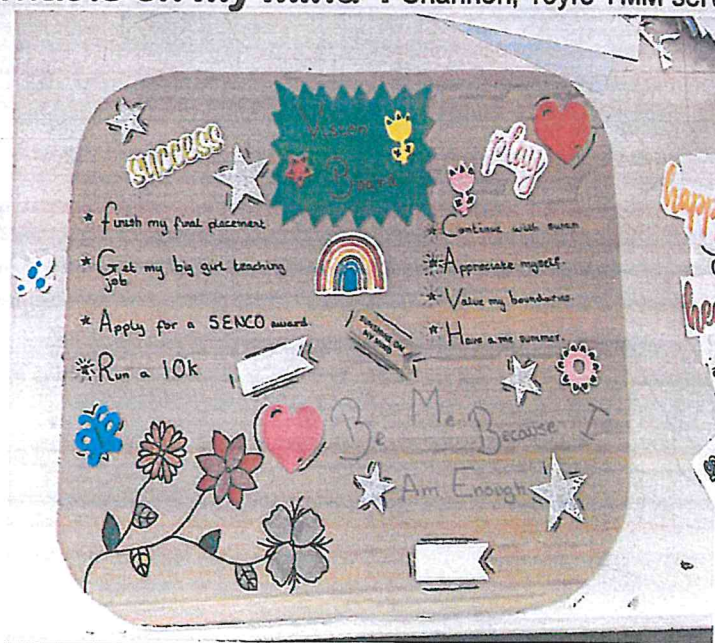 Shannon,
success
Vision
Board
play
* Finish my final placement
* Get my big girl teaching
job
* Apply for a SENCO award
* Run a 10k
* Continue with swim
* Appreciate myself
* Value my boundaries
* Have a me summer.
SUNSHINE ON
MY MIND
Be Me Because I
Am Enough